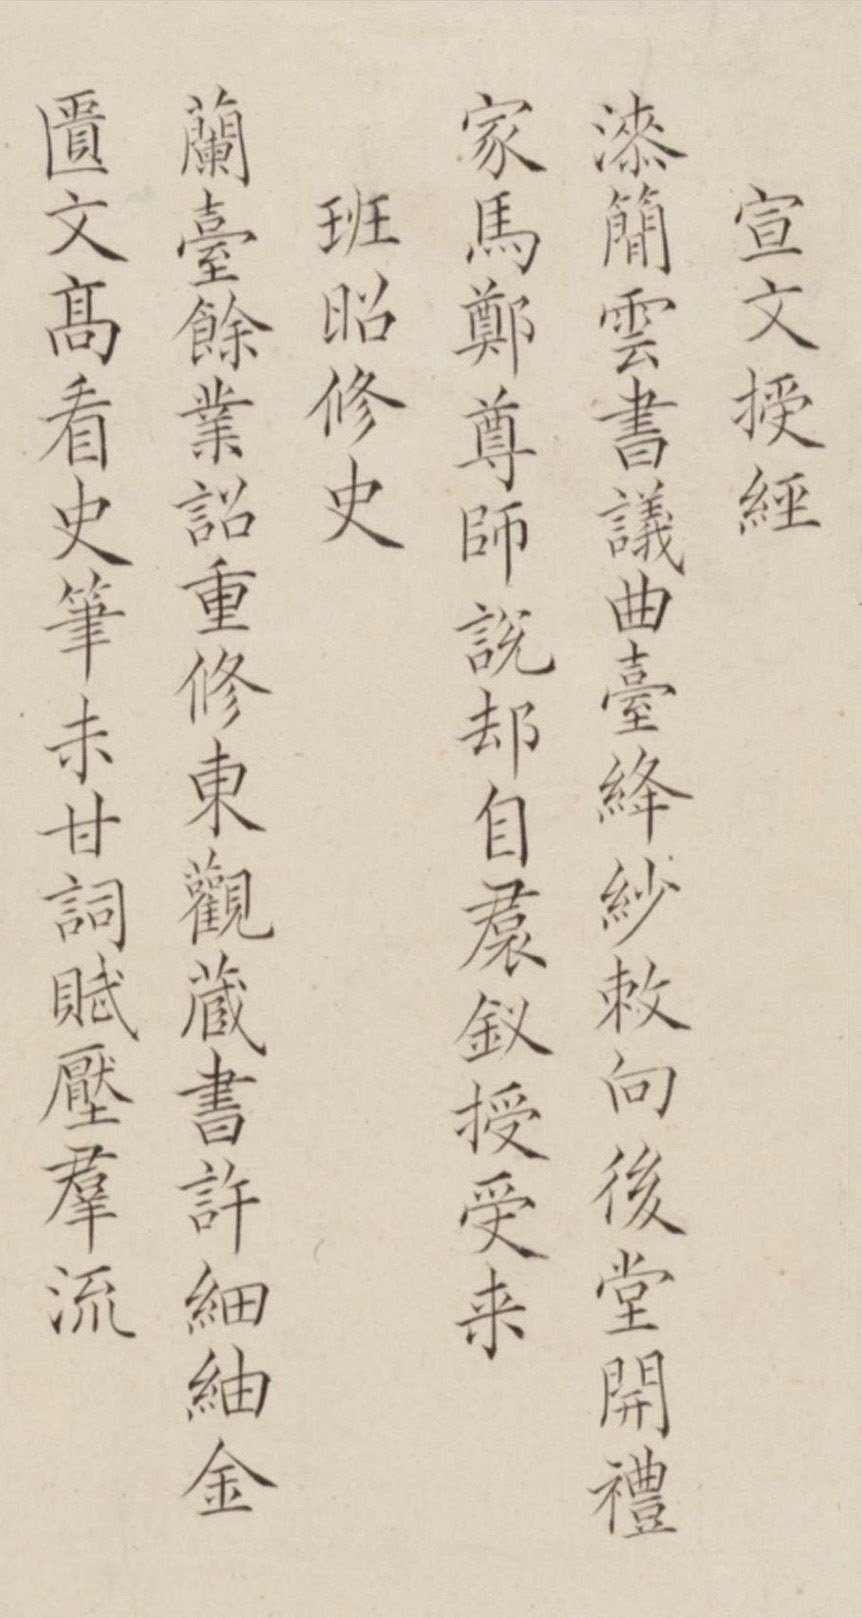 宣文授經
漆簡雲書議曲臺絳紗敕向後堂開禮
家馬鄭尊師說却自裠釵授受来
班昭修史
蘭臺餘業詔重修東觀蔵書許細紬金
匱文髙看史筆未甘詞賦壓羣流